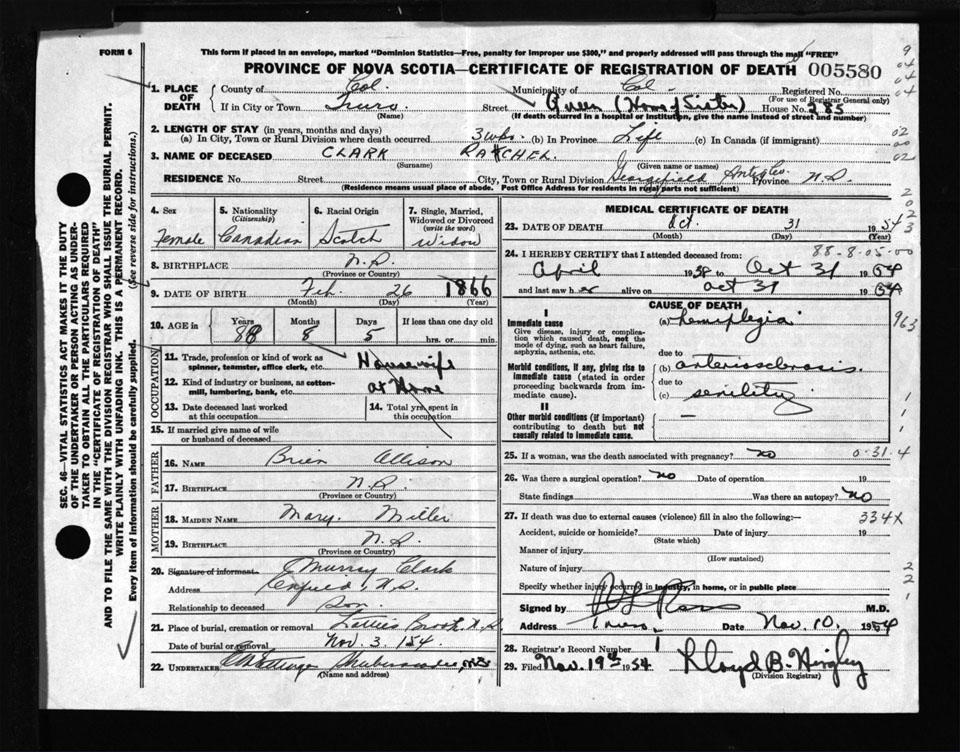 FORM 6
This form if placed in an envelope, marked "Dominion Statistics—Free, penalty for improper use $300," and properly addressed will pass through the mail "FREE"
PROVINCE OF NOVA SCOTIA—CERTIFICATE OF REGISTRATION OF DEATH 005580
1. PLACE OF DEATH County of Col. Municipality of Col. Registered No.
(For use of Registrar General only)
If in City or Town Truro Street Queen (Home of Sister) House No. 285
(Name) (If death occurred in a hospital or institution, give the name instead of street and number)
2. LENGTH OF STAY (in years, months and days)
(a) In City, Town or Rural Division where death occurred 3 wks. (b) In Province Life (c) In Canada (if immigrant)
3. NAME OF DECEASED CLARK RACHEL
(Surname) (Given name or names)
RESIDENCE No. Street City, Town or Rural Division Georgefield Province N.S.
(Residence means usual place of abode. Post Office Address for residents in rural parts not sufficient)
4. Sex Female
5. Nationality (Citizenship) Canadian
6. Racial Origin Scotch
7. Single, Married, Widowed or Divorced (write the word) Widow
8. BIRTHPLACE N.S.
(Province or Country)
9. DATE OF BIRTH Feb. 26 1866
(Month) (Day) (Year)
10. AGE in Years Months Days If less than one day old
88 8 5 hrs. or min.
OCCUPATION
11. Trade, profession or kind of work as spinner, teamster, office clerk, etc. Housewife
12. Kind of industry or business, as cotton-mill, lumbering, bank, etc. at Home
13. Date deceased last worked at this occupation
14. Total yrs. spent in this occupation
15. If married give name of wife or husband of deceased
FATHER
16. NAME Brien Allison
17. BIRTHPLACE N.S.
(Province or Country)
MOTHER
18. MAIDEN NAME Mary Miller
19. BIRTHPLACE N.S.
(Province or Country)
20. Signature of informant Murray Clark
Address Enfield, N.S.
Relationship to deceased Son
21. Place of burial, cremation or removal Latties Brook N.S.
Date of burial or removal Nov. 3. 154.
22. UNDERTAKER Shubenacadie, N.S.
(Name and address)
MEDICAL CERTIFICATE OF DEATH
23. DATE OF DEATH Oct. 31 1954
(Month) (Day) (Year)
88-8-05-00
24. I HEREBY CERTIFY that I attended deceased from:
April 1938 to Oct 31 1954
and last saw her alive on Oct 31 1954
CAUSE OF DEATH
I
Immediate cause
Give disease, injury or complication which caused death, not the mode of dying, such as heart failure, asphyxia, asthenia, etc.
(a) hemiplegia
963
due to
Morbid conditions, if any, giving rise to immediate cause (stated in order proceeding backwards from immediate cause).
(b) arteriosclerosis.
due to
(c) senility
II
Other morbid conditions (if important) contributing to death but not causally related to immediate cause.
25. If a woman, was the death associated with pregnancy? no 0-31-4
26. Was there a surgical operation? no Date of operation 19
State findings Was there an autopsy? no
27. If death was due to external causes (violence) fill in also the following:— 334X
Accident, suicide or homicide? Date of injury 19
(State which)
Manner of injury
(How sustained)
Nature of injury
Specify whether injury occurred in industry, in home, or in public place
Signed by Ross M.D.
Address Truro. Date Nov. 10, 1954
28. Registrar's Record Number
29. Filed Nov. 19th 1954 Lloyd B. Hingley
(Division Registrar)
SEC. 46—VITAL STATISTICS ACT MAKES IT THE DUTY OF THE UNDERTAKER OR PERSON ACTING AS UNDERTAKER TO OBTAIN ALL THE PARTICULARS REQUIRED IN THE "CERTIFICATE OF REGISTRATION OF DEATH"
AND TO FILE THE SAME WITH THE DIVISION REGISTRAR WHO SHALL ISSUE THE BURIAL PERMIT.
WRITE PLAINLY WITH UNFADING INK. THIS IS A PERMANENT RECORD.
Every item of information should be carefully supplied. (See reverse side for instructions.)
9
04
04
04
02
00
02
2
0
2
3
1
1
1
2
2
1